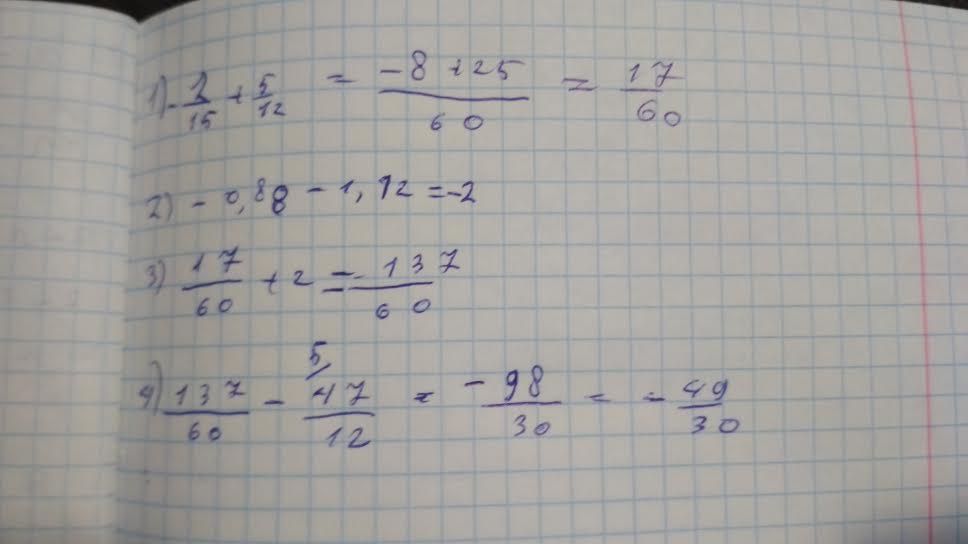 1) -2/15 + 5/12 = (-8 + 25)/60 = 17/60
2) - 0,88 - 1,12 = -2
3) 17/60 + 2 = -137/60
4) 137/60 - 5/ 47/12 = -98/30 = -49/30